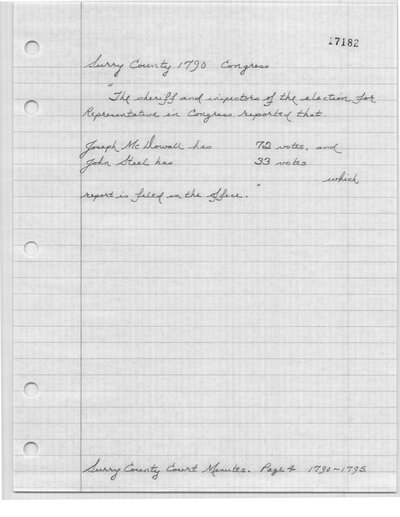 17182
Surry County 1790 Congress
"The sheriff and inspectors of the election for
Representative in Congress reported that
Joseph McDowall has 72 votes, and
John Steel has 33 votes
which
report is filed in the office."
Surry County Court Minutes. Page 4 1790-1795